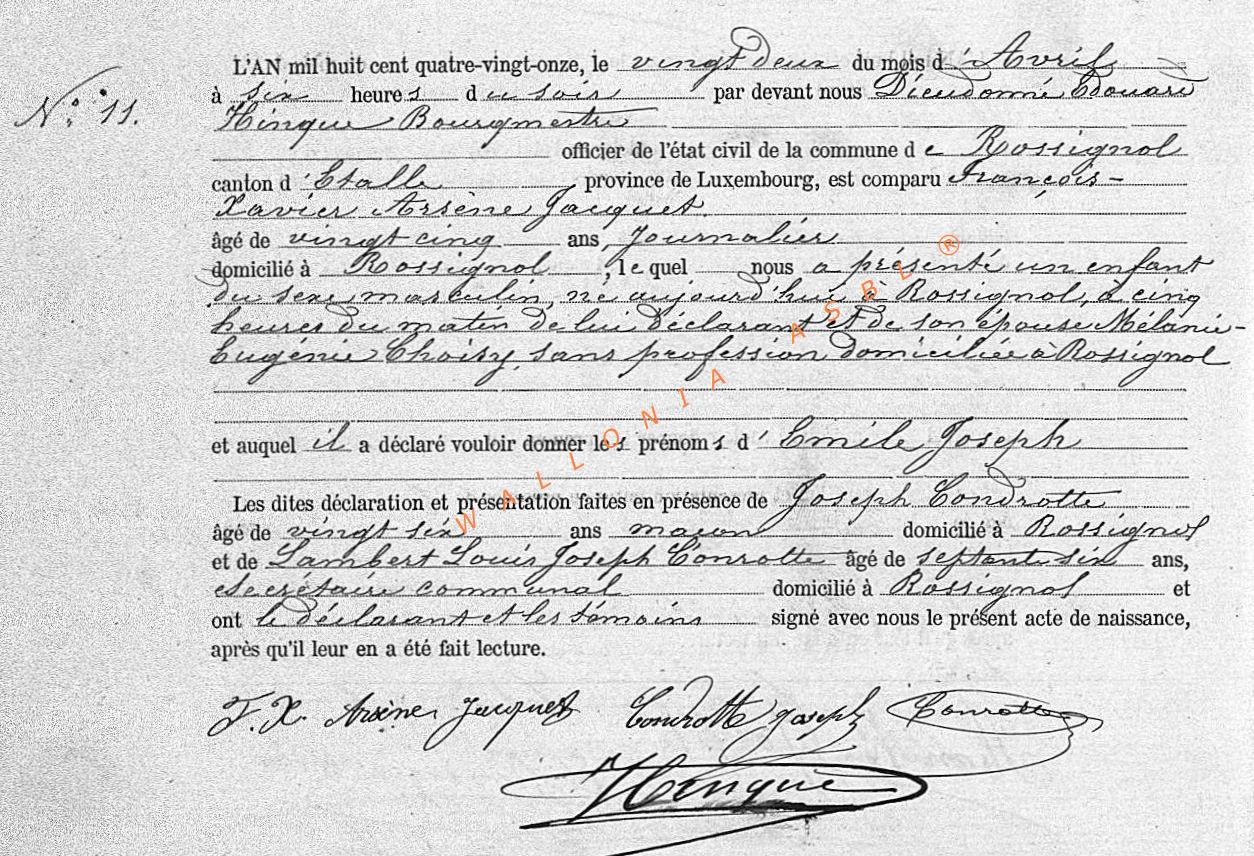 L'AN mil huit cent quatre-vingt-onze, le vingt deux du mois d'Avril
N° 11.
à six heures du soir par devant nous Dieudonné Edouard
Hinque Bourgmestre
officier de l'état civil de la commune de Rossignol
canton d'Etalle, province de Luxembourg, est comparu François-
Xavier Arsène Jacquet.
âgé de vingt cinq ans, Journalier
domicilié à Rossignol, lequel nous a présenté un enfant
du sexe masculin, né aujourd'hui à Rossignol, à cinq
heures du matin de lui déclarant et de son épouse Mélanie-
Eugénie Choisy, sans profession domiciliée à Rossignol
et auquel il a déclaré vouloir donner les prénoms d'Emile Joseph
Les dites déclaration et présentation faites en présence de Joseph Condrotte
âgé de vingt six ans maçon domicilié à Rossignol
et de Lambert Louis Joseph Conrotte âgé de septante six ans,
secrétaire communal domicilié à Rossignol et
ont le déclarant et les témoins signé avec nous le présent acte de naissance,
après qu'il leur en a été fait lecture.
F. X. Arsène Jacquet Condrotte Joseph Conrotte
Hinque
WALLONIA ASBL ®